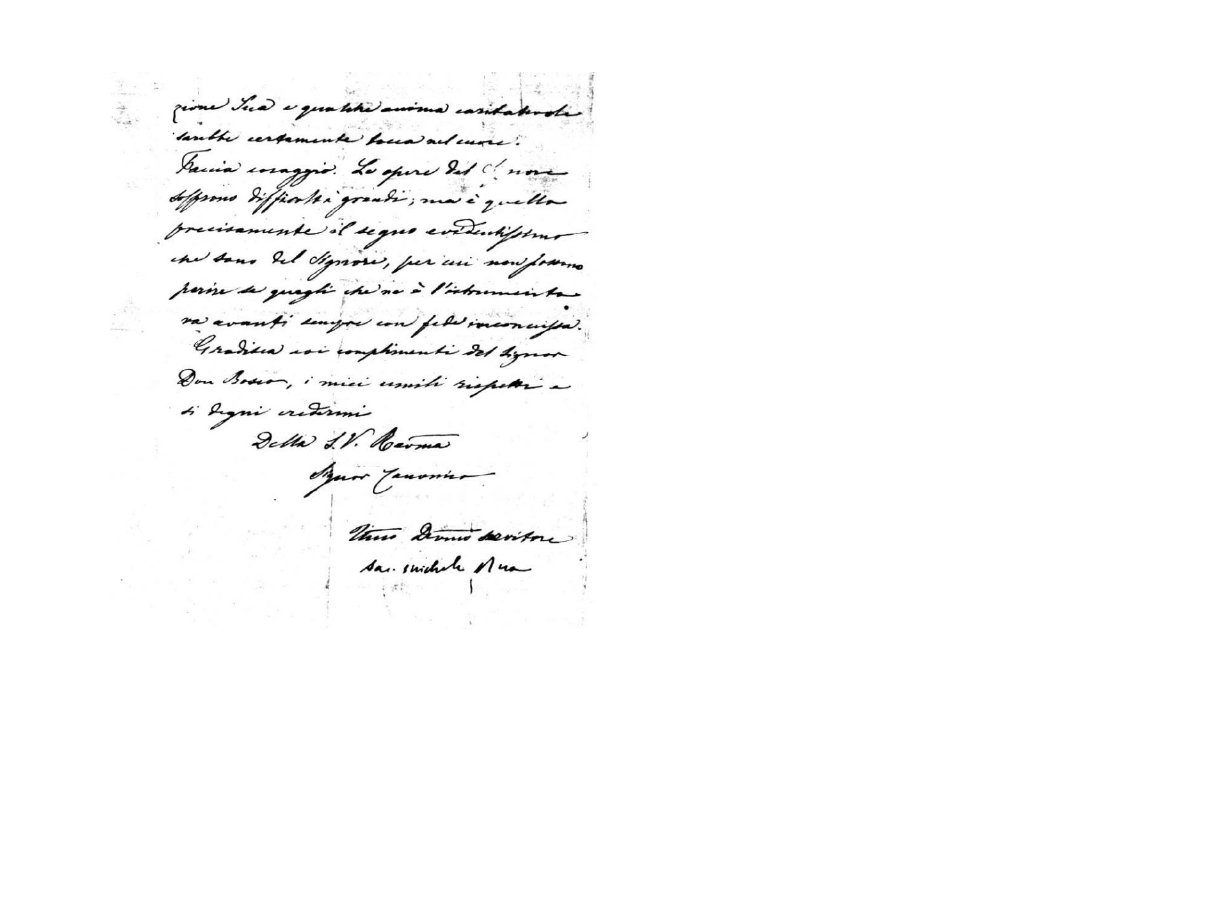 zione Sua e qualche anima caritatevole
sarebbe certamente tocca nel cuore.
Faccia coraggio. Le opere del non
soffrono difficoltà grandi; ma è quello
precisamente il segno evidentissimo
che sono del Signore, per cui non possono
perire se quegli che ne è l'istrumento
va avanti sempre con fede inconcussa.
Gradisca coi complimenti del Signor
Don Bosco, i miei umili rispetti e
si degni credermi
Della S.V. Revma
Signor Canonico
Umo Devmo servitore
Sac. Michele Rua